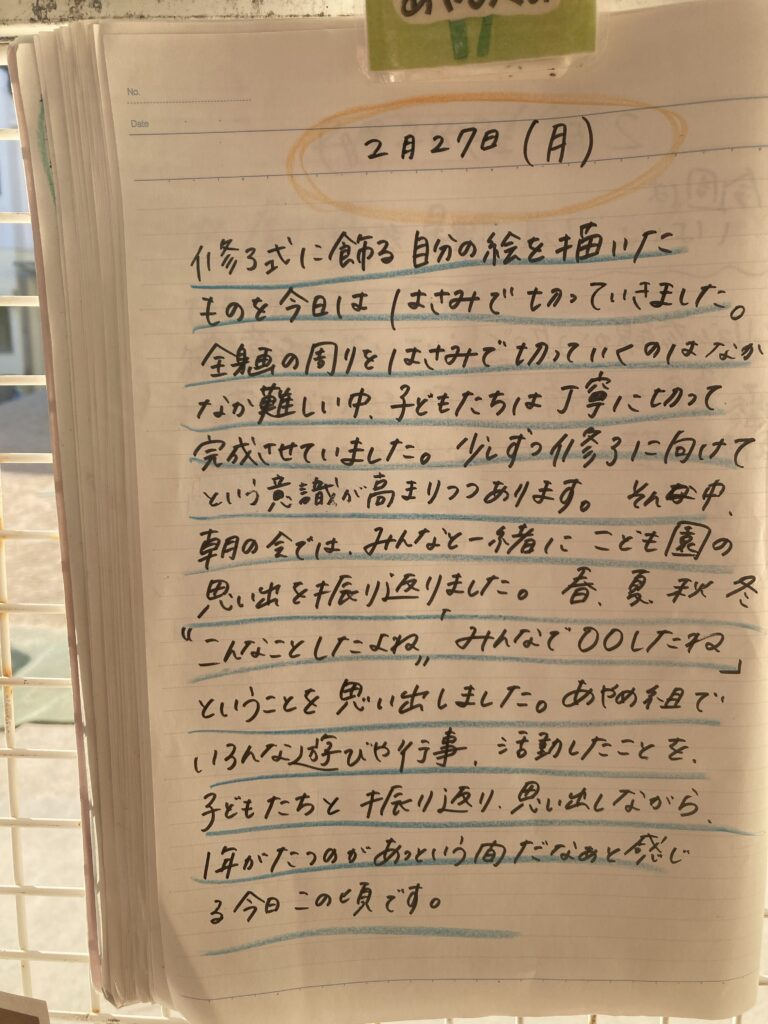 No.
Date
2月27日(月)
修了式に飾る 自分の絵を描いた
ものを今日は はさみで切っていきました。
全身画の周りをはさみで切っていくのはなか
なか難しい中、子どもたちは丁寧に切って
完成させていました。少しずつ修了に向けて
という意識が高まりつつあります。そんな中、
朝の会では、みんなと一緒に こども園の
思い出を振り返りました。春、夏、秋、冬
“こんなことしたよね„「みんなで〇〇したね」
ということを思い出しました。あやめ組で
いろんな遊びや行事、活動したことを、
子どもたちと振り返り、思い出しながら、
1年がたつのがあっという間だなぁと感じ
る今日この頃です。